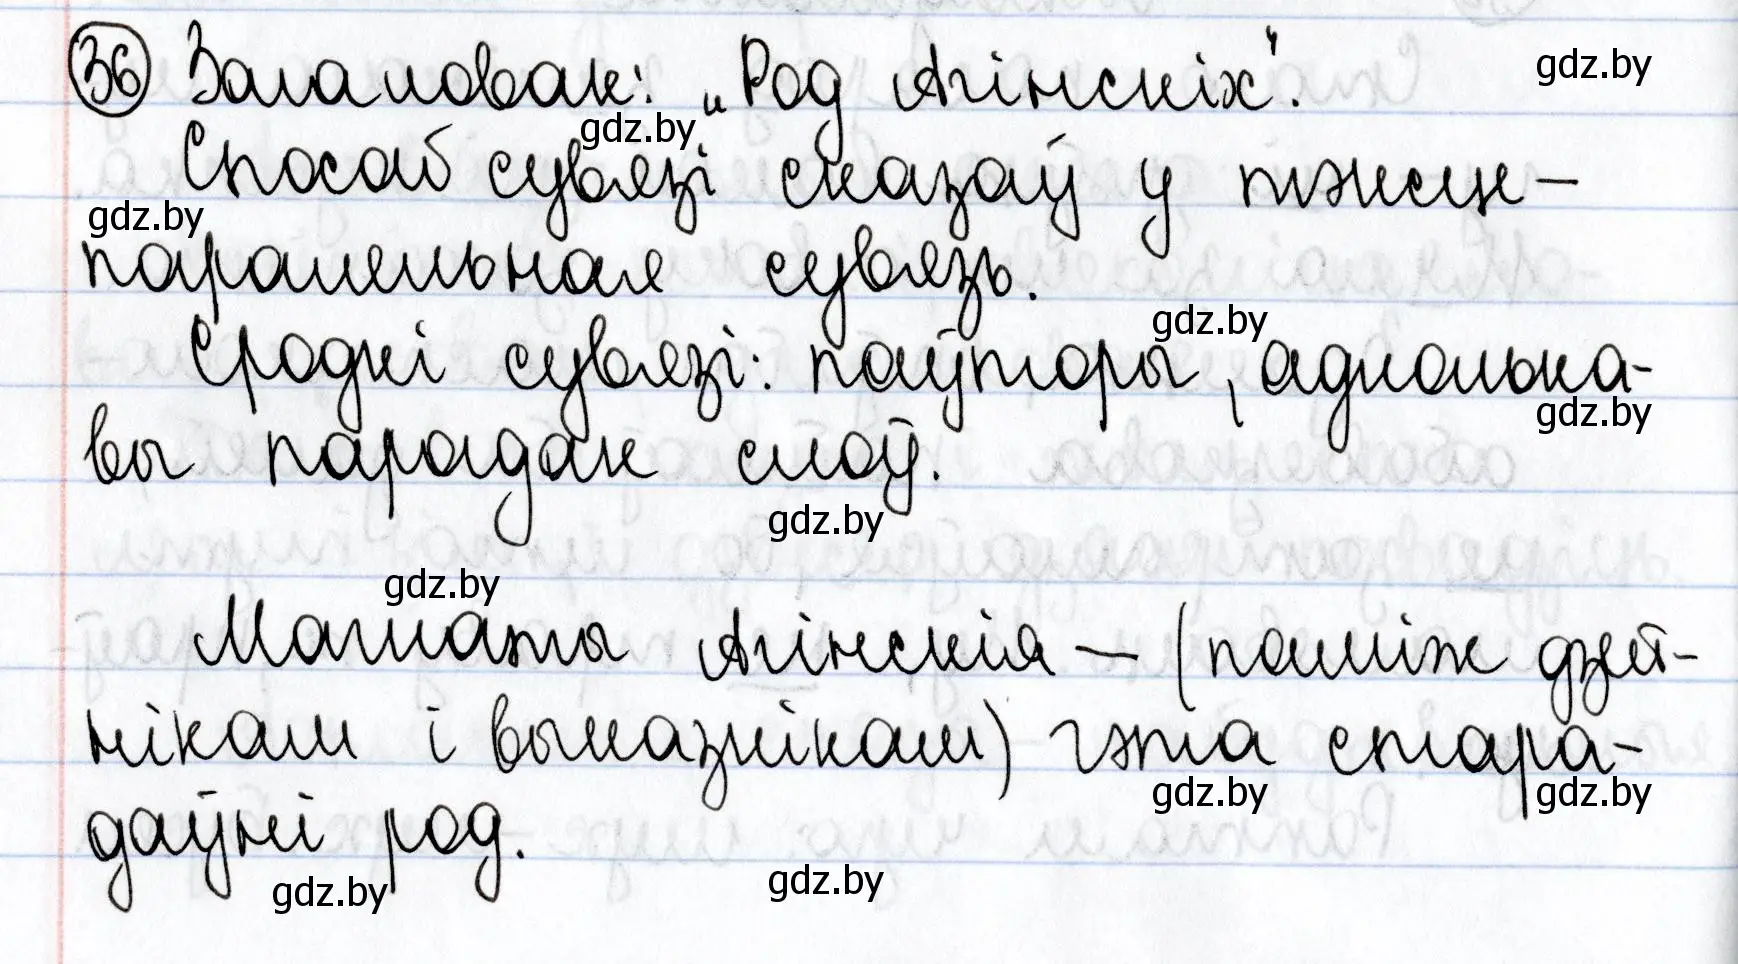 36 Загаловак: „Род Агінскіх".
gdz.by
gdz.by
Спосаб сувязі сказаў у тэксце –
gdz.by
паралельная сувязь.
gdz.by
Сродкі сувязі: паўторы, аднолька-
gdz.by
вы парадак слоў.
gdz.by
gdz.by
Магнаты Агінскія – (паміж дзей-
нікам і выказнікам) гэта стара-
gdz.by
gdz.by
даўні род.
gdz.by
gdz.by